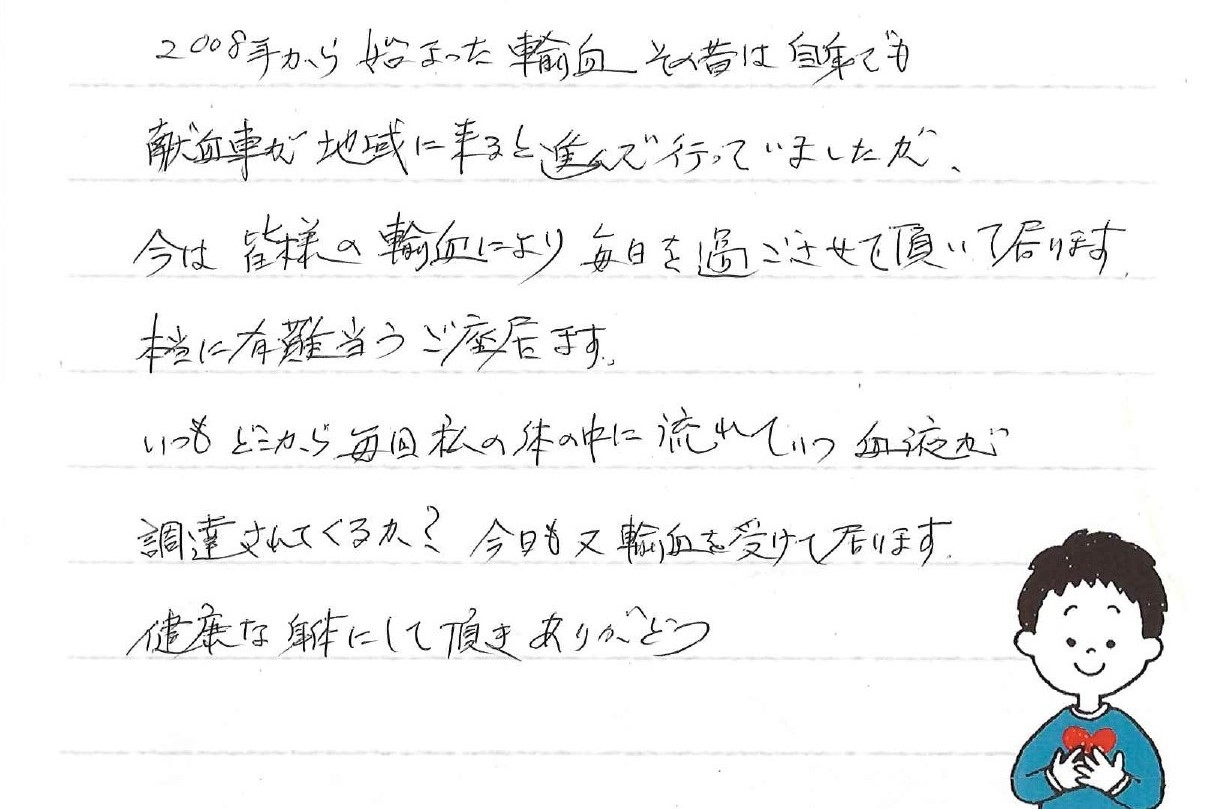 2008年から始まった輸血 その昔は自分でも
献血車が地域に来ると進んで行っていましたが、
今は皆様の輸血により毎日を過ごさせて頂いて居ります。
本当に有難当うご座居ます。
いつもどこから毎回私の体の中に流れていつ血液が
調達されてくるか？今日も又輸血を受けて居ります。
健康な身体にして頂きありがとう